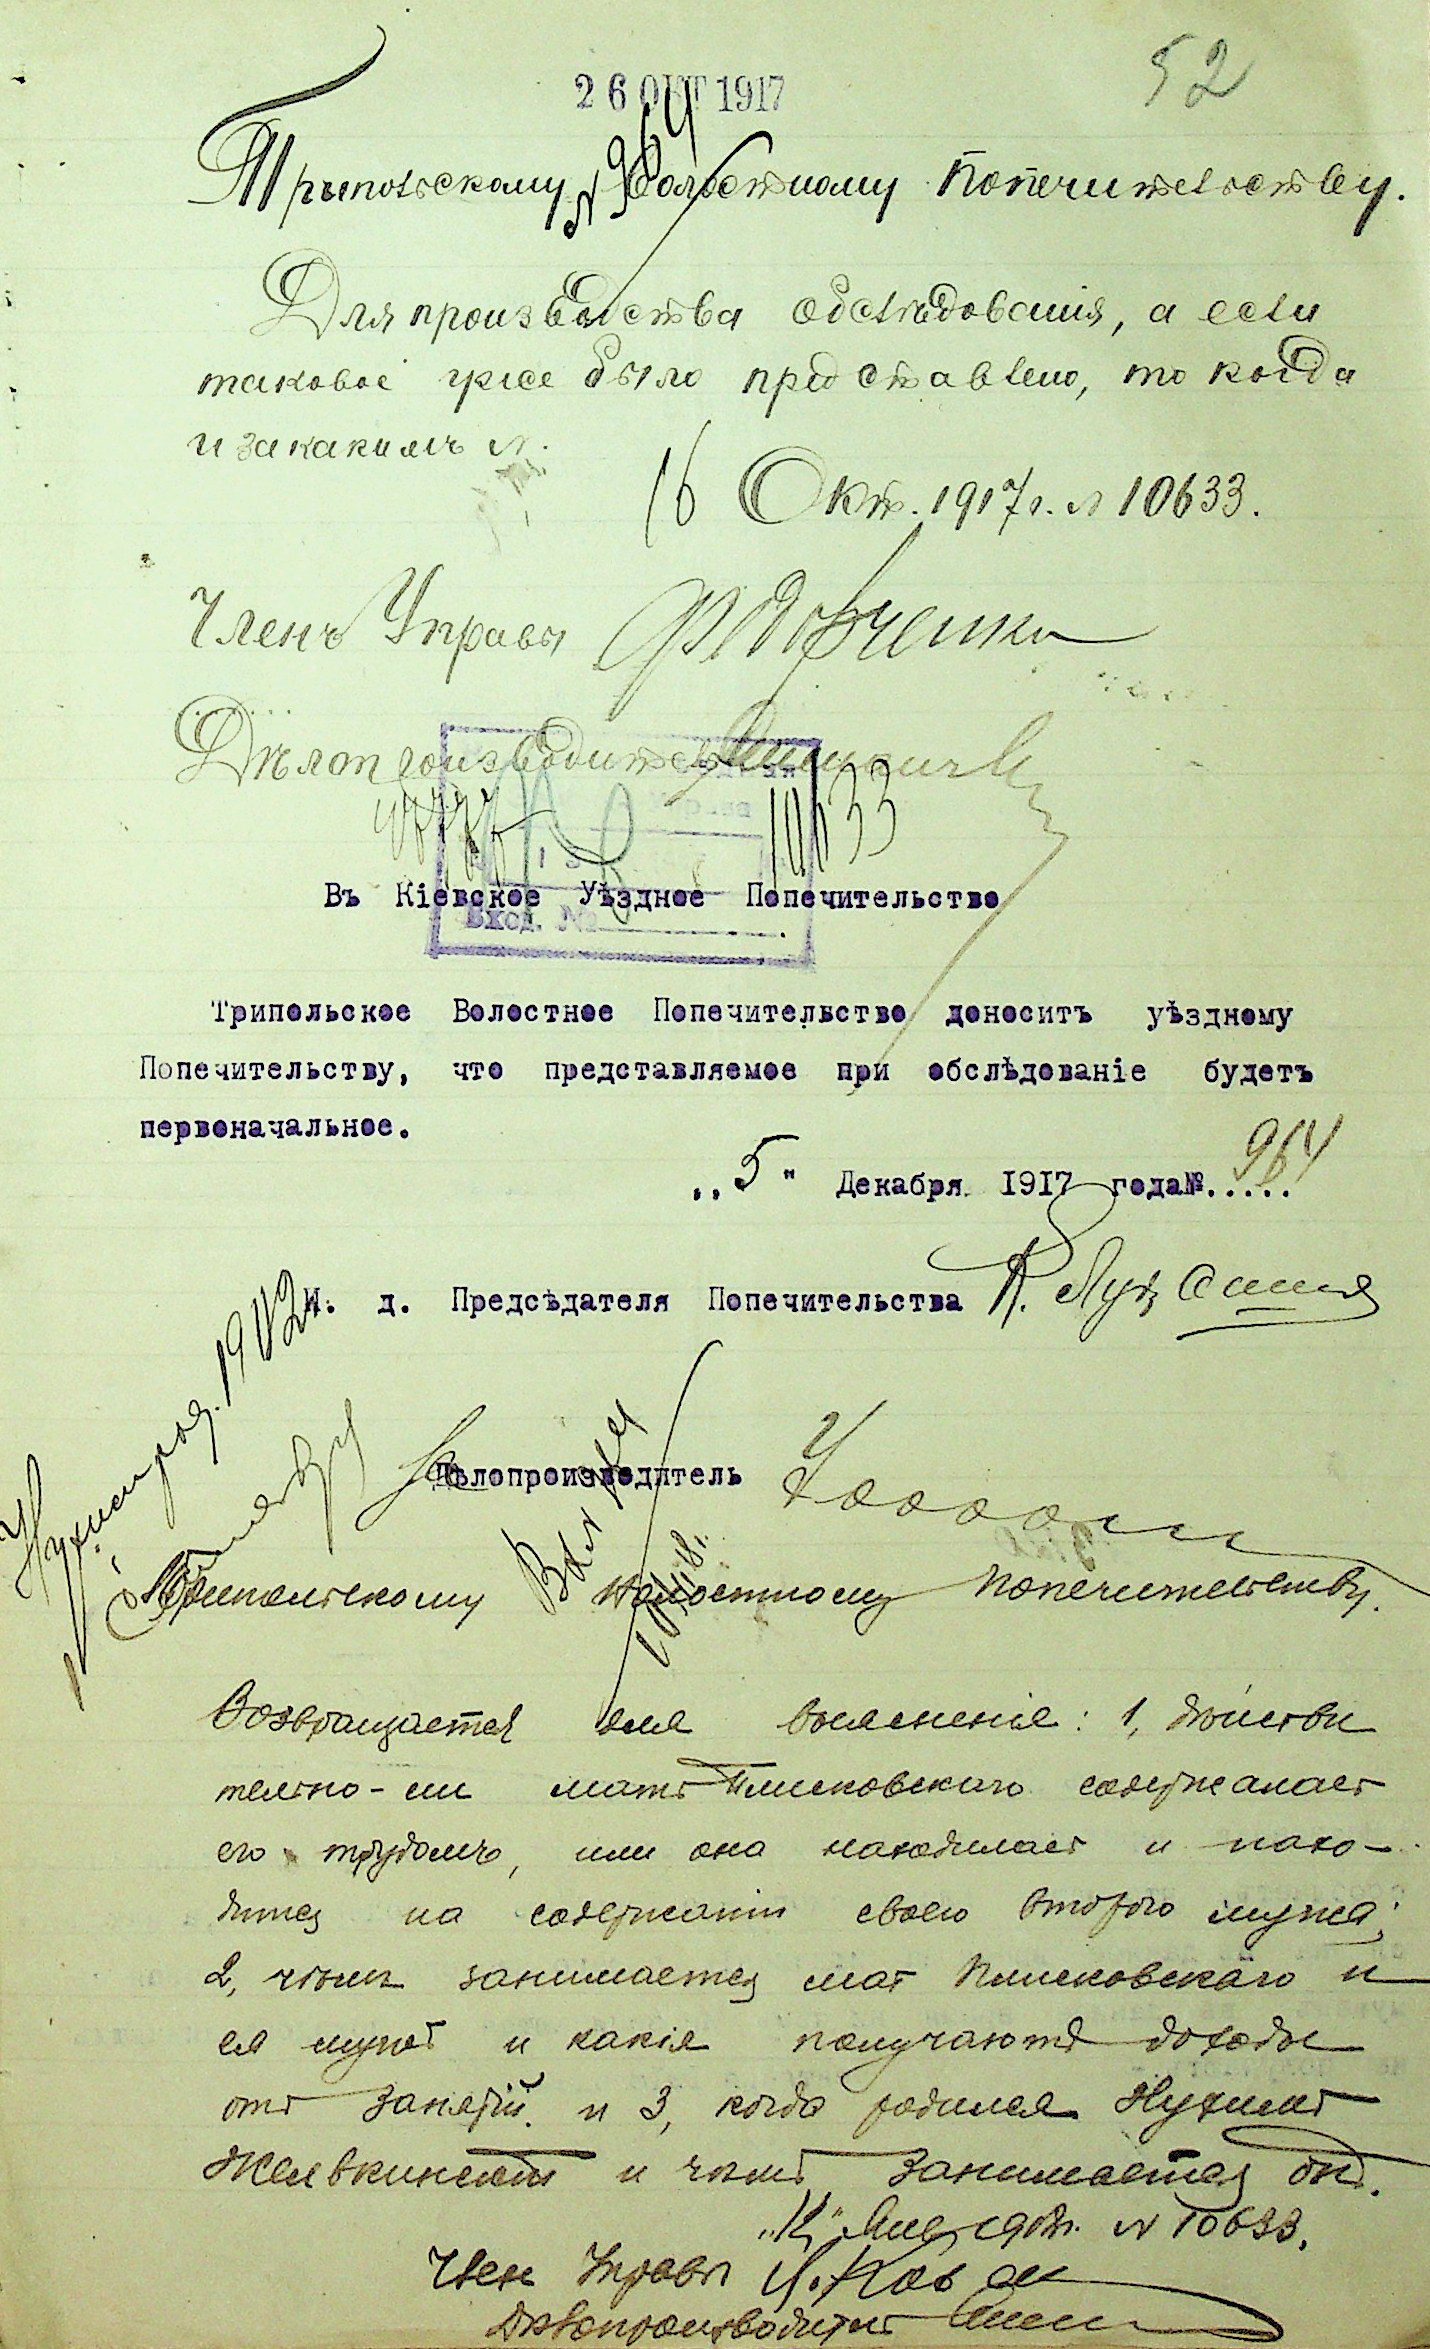 52
26 ОКТ 1917
№ 964
Трипольскому Волостному Попечительству.
Для производства обслѣдованія, а если
таковое уже было представлено, то когда
и за какимъ №.
16 Окт. 1917 г. № 10633.
Членъ Управы
Дѣлопроизводитель
10633
Вход. №
Въ Кіевское Уѣздное Попечительство
Трипольское Волостное Попечительство доноситъ уѣздному
Попечительству, что представляемое при обслѣдованіе будетъ
первоначальное.
„5" Декабря 1917 года №..... 964
И. д. Предсѣдателя Попечительства
Дѣлопроизводитель
Трипольскому Волостному Попечительству.
Возвращается для выясненія: 1, дѣйстви
тельно-ли мать Плисковскаго содержалась
его трудомъ, или она находилась и нахо-
дится на содержаніи своего второго мужа;
2, чѣмъ занимается мать Плисковскаго и
ея мужъ и какія получаютъ доходы
отъ занятій. и 3, когда родился Нухимъ
и чѣмъ занимается онъ.
№ 10633.
Член Управы
Дѣлопроизводитель